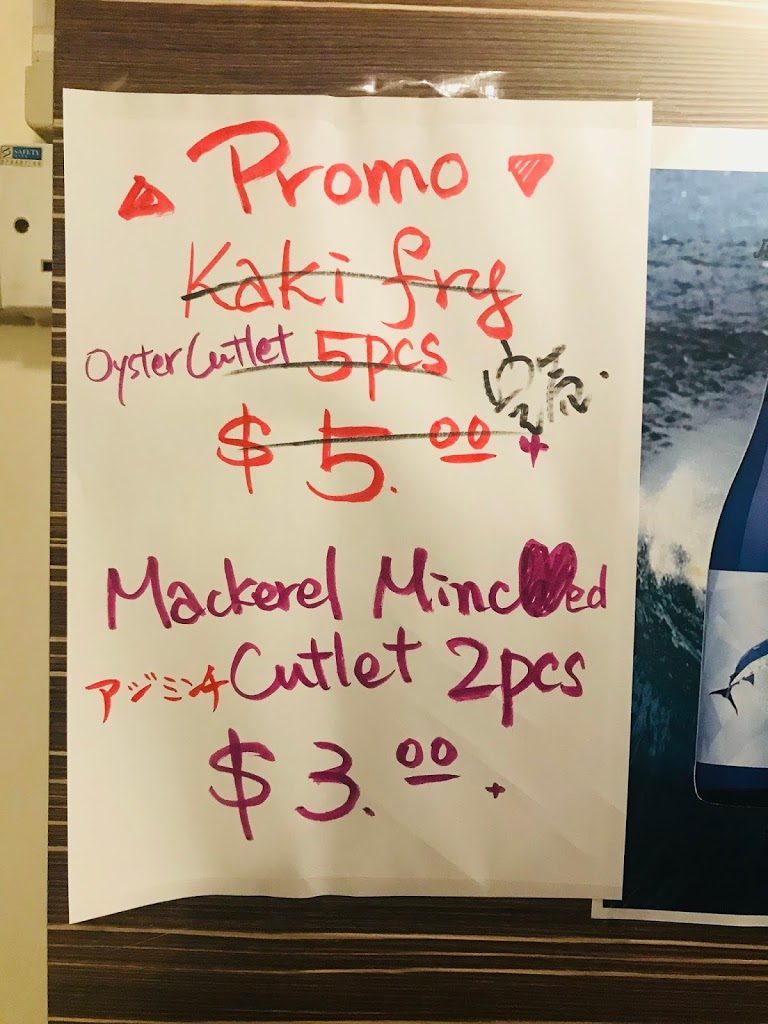 Promo
Kaki fry
Oyster Cutlet 5pcs
$5.00+
Mackerel Minced
アジミンチ Cutlet 2pcs
$3.00+
SAFETY